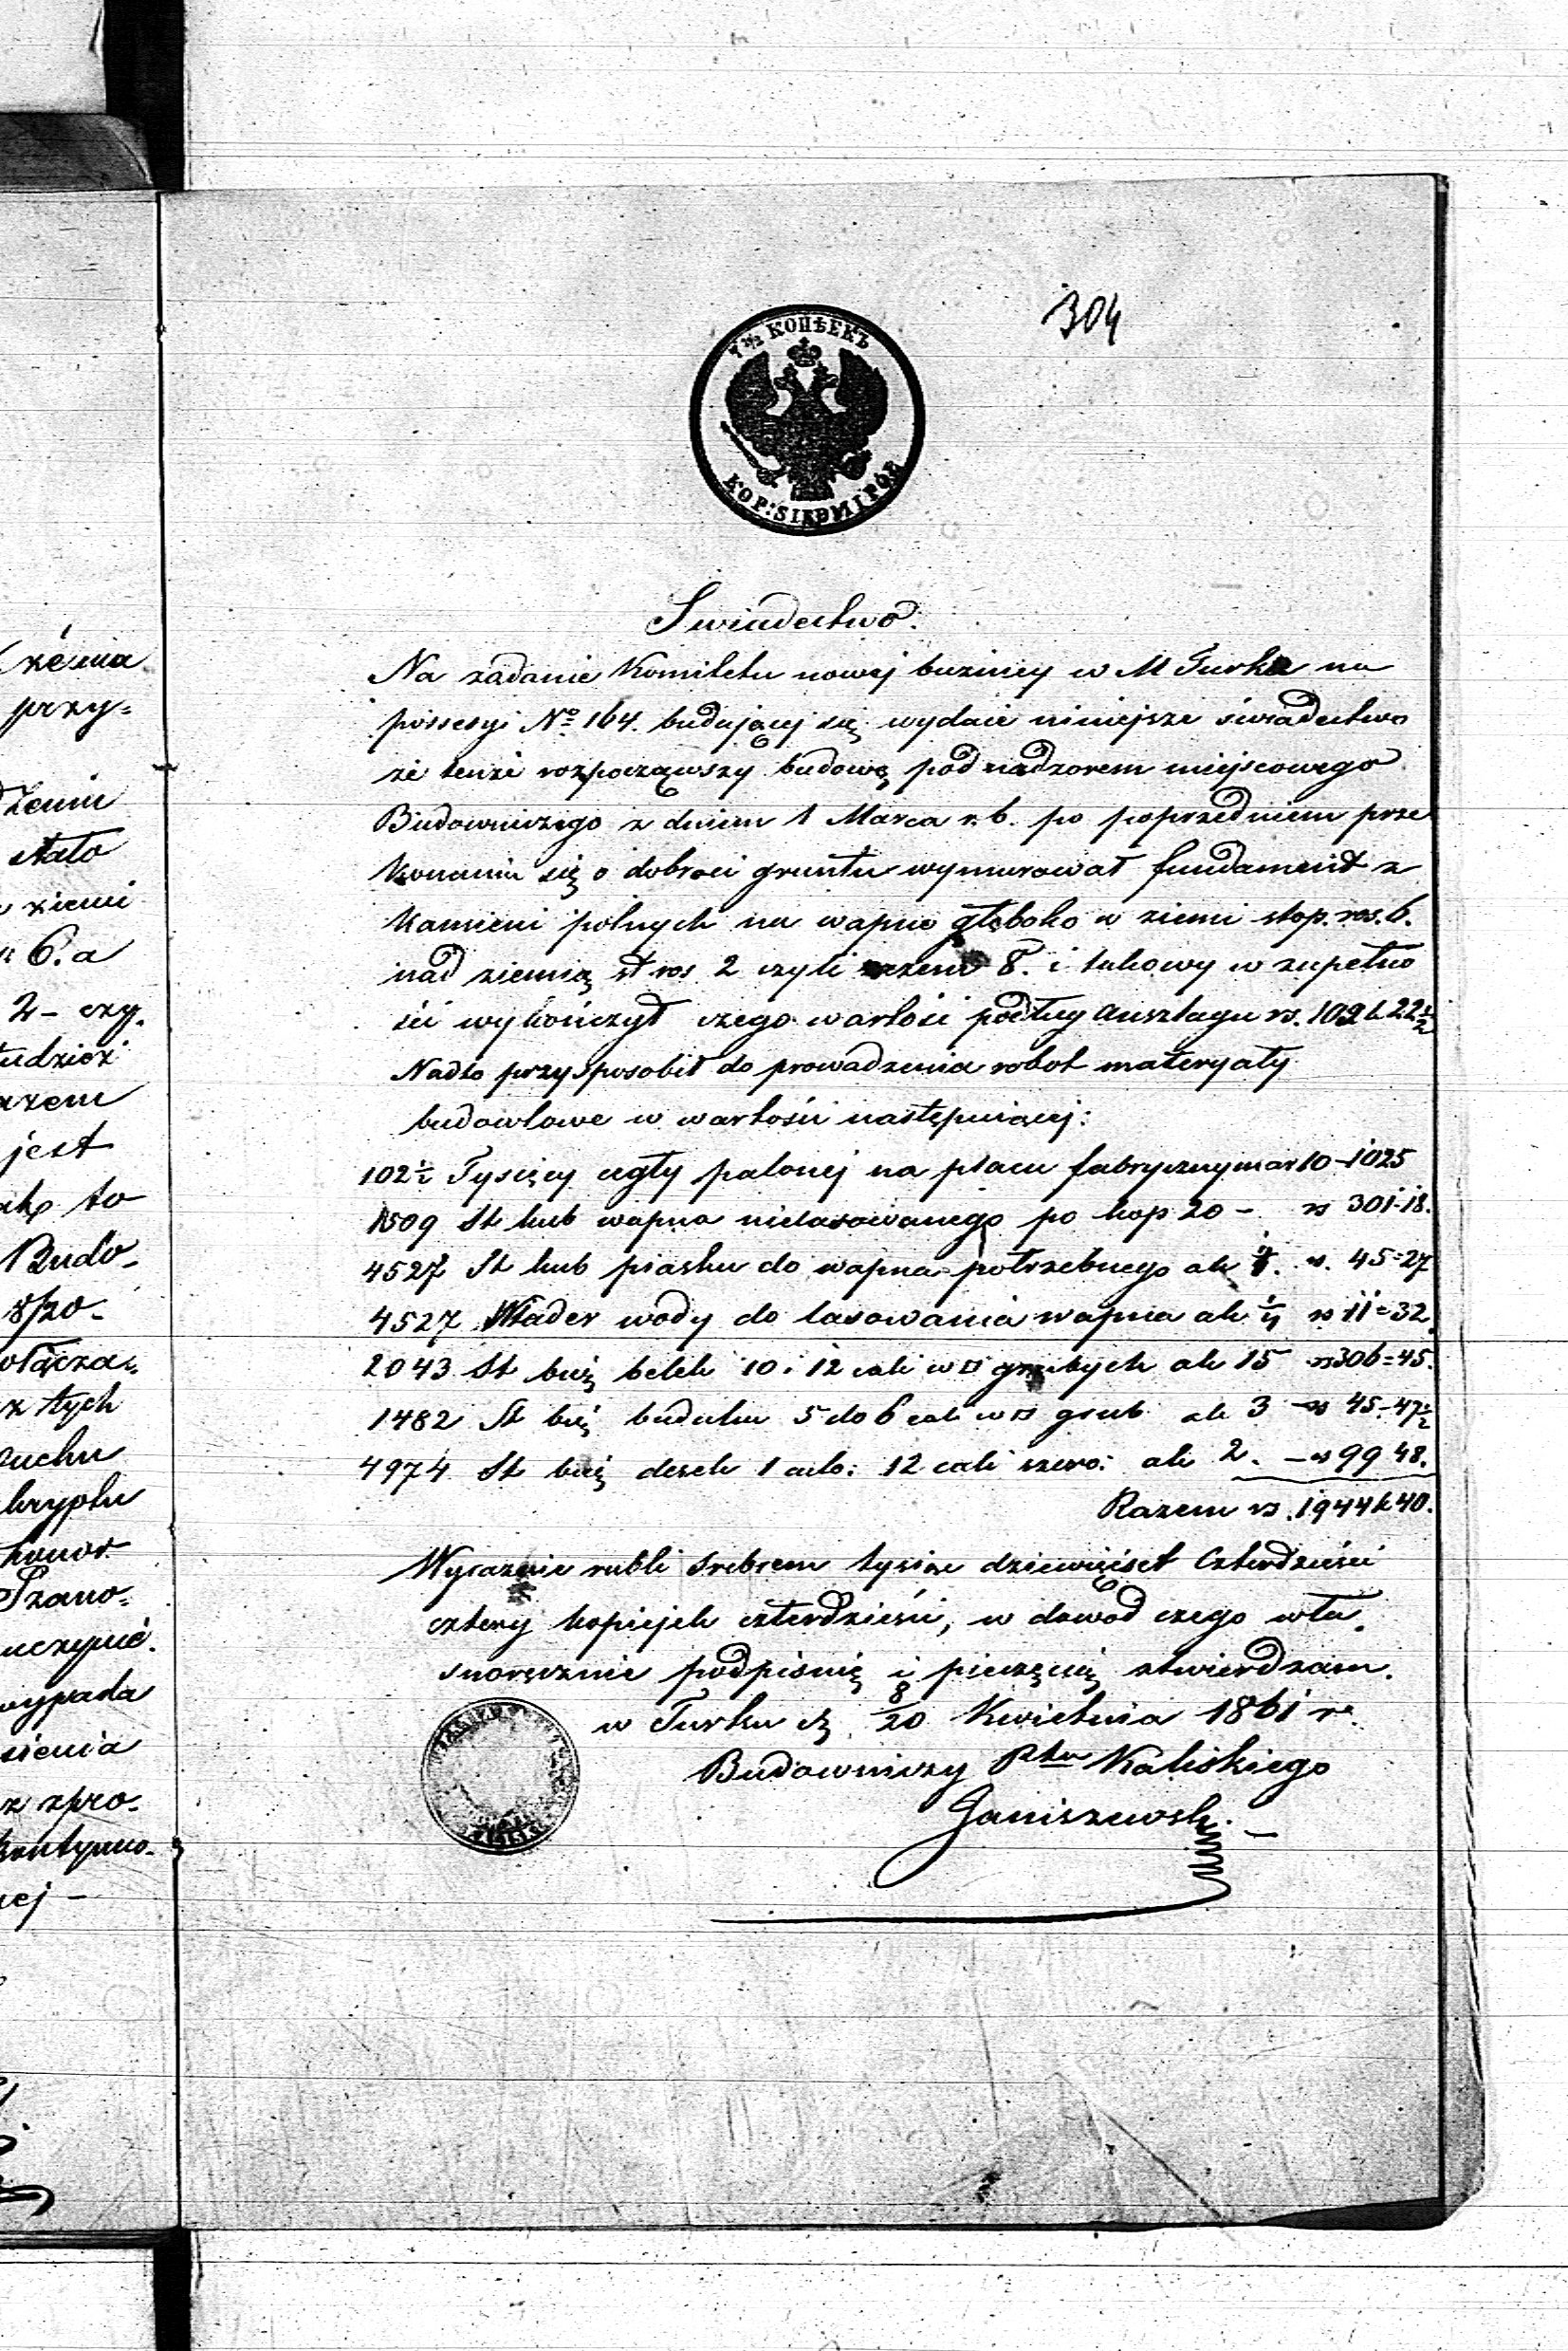 304
7 1/2 КОПѢЕКЪ
KOP: SIEDM I PÓŁ
Swiadectwo.
Na żadanie Komitetu nowej buznicy w M Turku na
possesyi No 164. budującej się wydaie niniejsze świadectwo
że tenże rozpocząwszy budowę pod nadzorem miejscowego
Budowniczego z dniem 1 Marca r. b. po poprzedniem prze
konaniu się o dobroci gruntu wymurował fundament z
kamieni polnych na wapno głęboko w ziemi stop. ros. 6.
nad ziemią st ros 2 czyli razem 8. i takowy w zupełno
ści wykończył czego wartości podług Anszlagu rs. 109 k 22 1/2
Nadto przysposobił do prowadzenia robot materyały
budowlowe w wartości następuiącej:
102 1/2 Tysięcy cegły palonej na placu fabrycznym a rs 10 – 1025
1509 St kub wapna nielasowanego po kop 20 – rs 301-18.
4527 St kub piasku do wapna potrzebnego a k 1. rs. 45=27
4527 Wiader wody do lasowania wapna a k 1/4 rs 11=32.
2043 St bież belek 10 i 12 cali w □ grubych a k 15 rs 306=45.
1482 St bież budulcu 5 do 6 cali w □ grub a k 3 – rs 45-47 1/2
4974 St bież desek 1 calo: 12 cali szero: a k 2. – rs 99 48.
Razem rs. 1944 k 40.
Wyraznie rubli srebrem tysiac dziewięćset czterdzieści
cztery kopiejek czterdzieści, w dowod czego wła
snoręcznie podpisuię i pieczęcią stwierdzam.
w Turku d. 8/20 Kwietnia 1861 r.
Budowniczy Ptu Kaliskiego
Janiszewski
żenia
przy=
stało
ziemi
6. a
2 – czy.
tudzież
razem
jest
to
Budo-
z tych
honor
Szano-
uczynić.
wypada
sienia